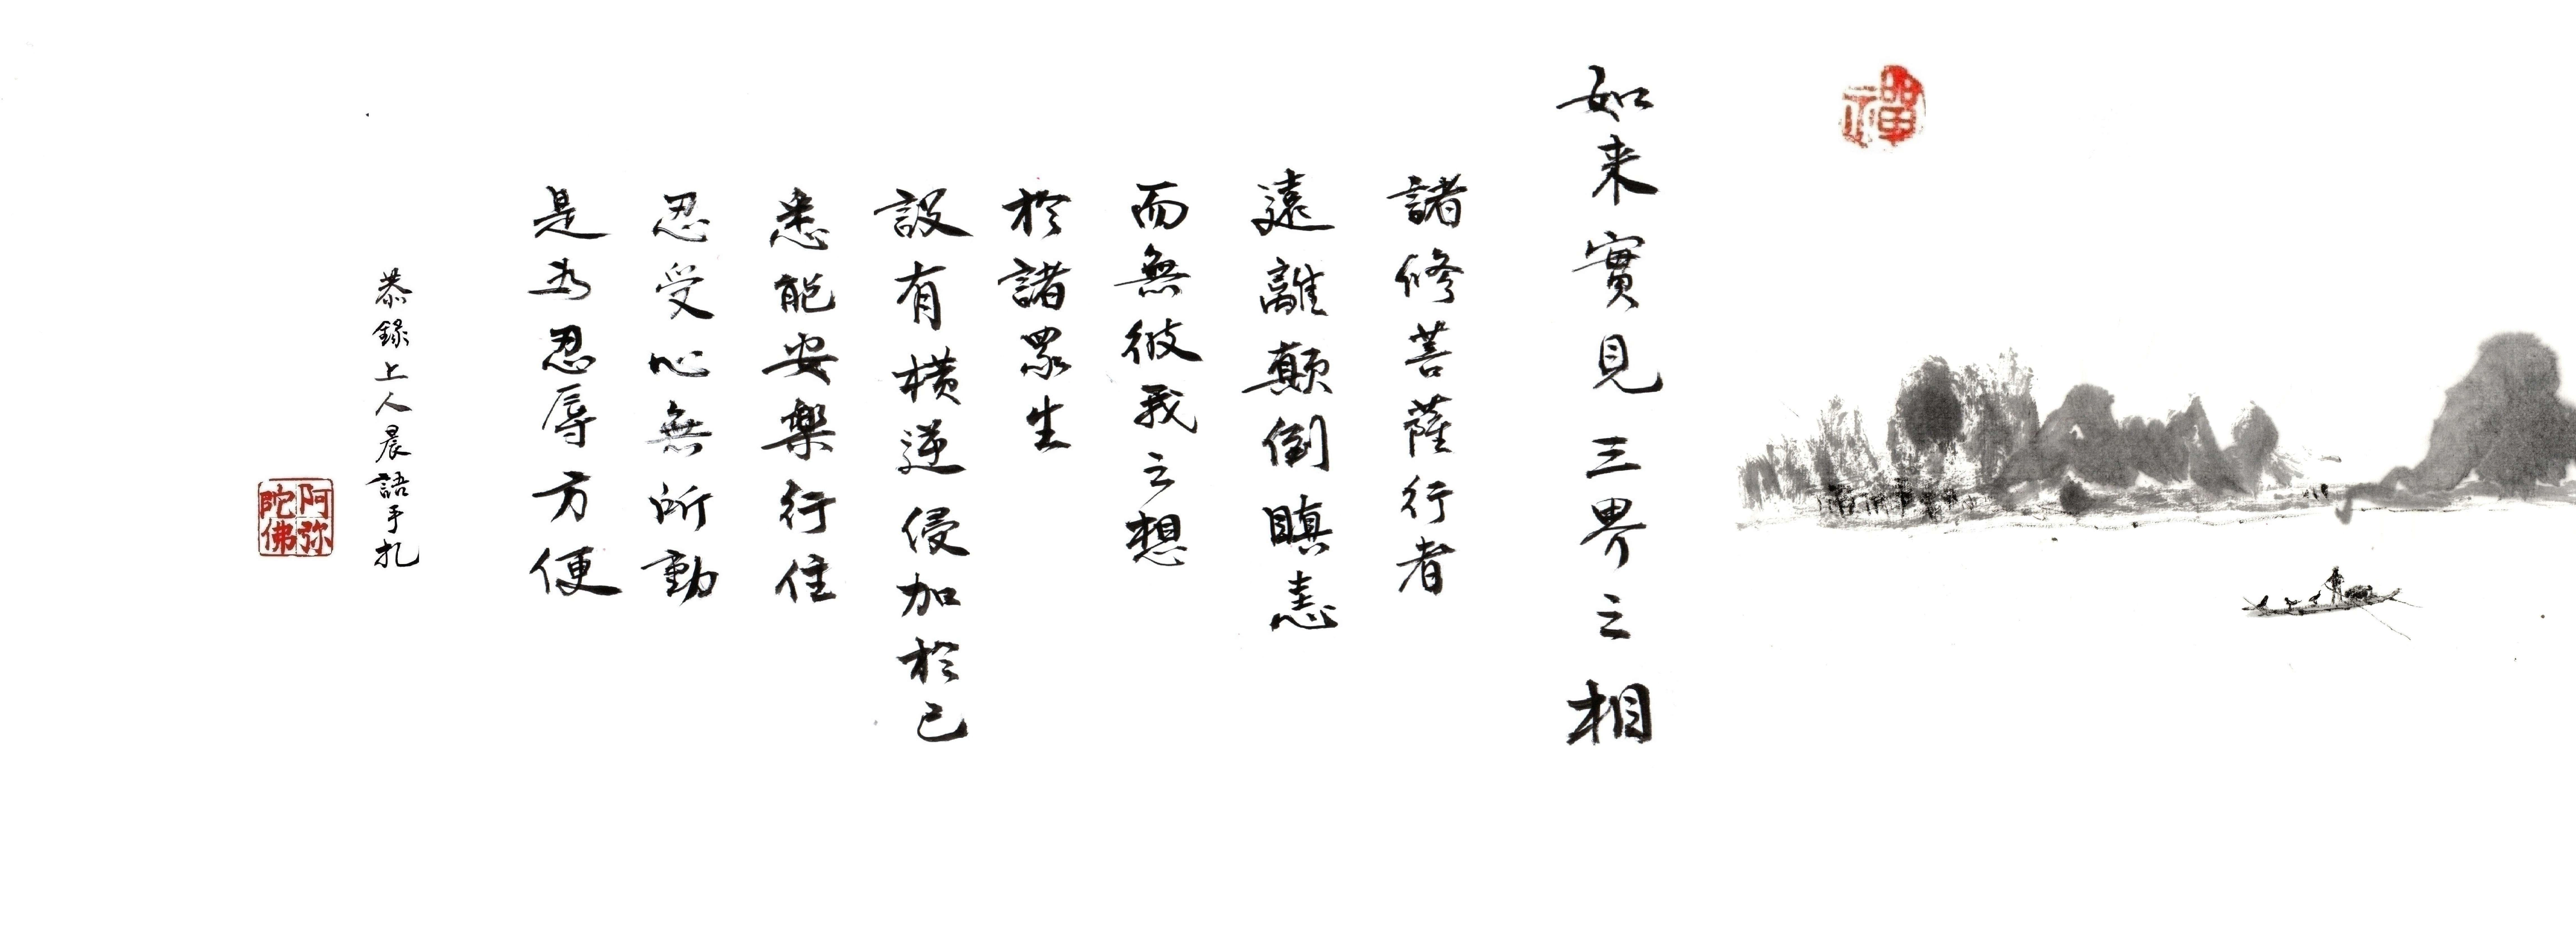 禪
如来實見三界之相
諸修菩薩行者
遠離顛倒瞋恚
而無彼我之想
於諸眾生
設有橫逆侵加於己
悉能安樂行住
忍受心無所動
是为忍辱方便
恭錄上人晨語手札
阿弥陀佛